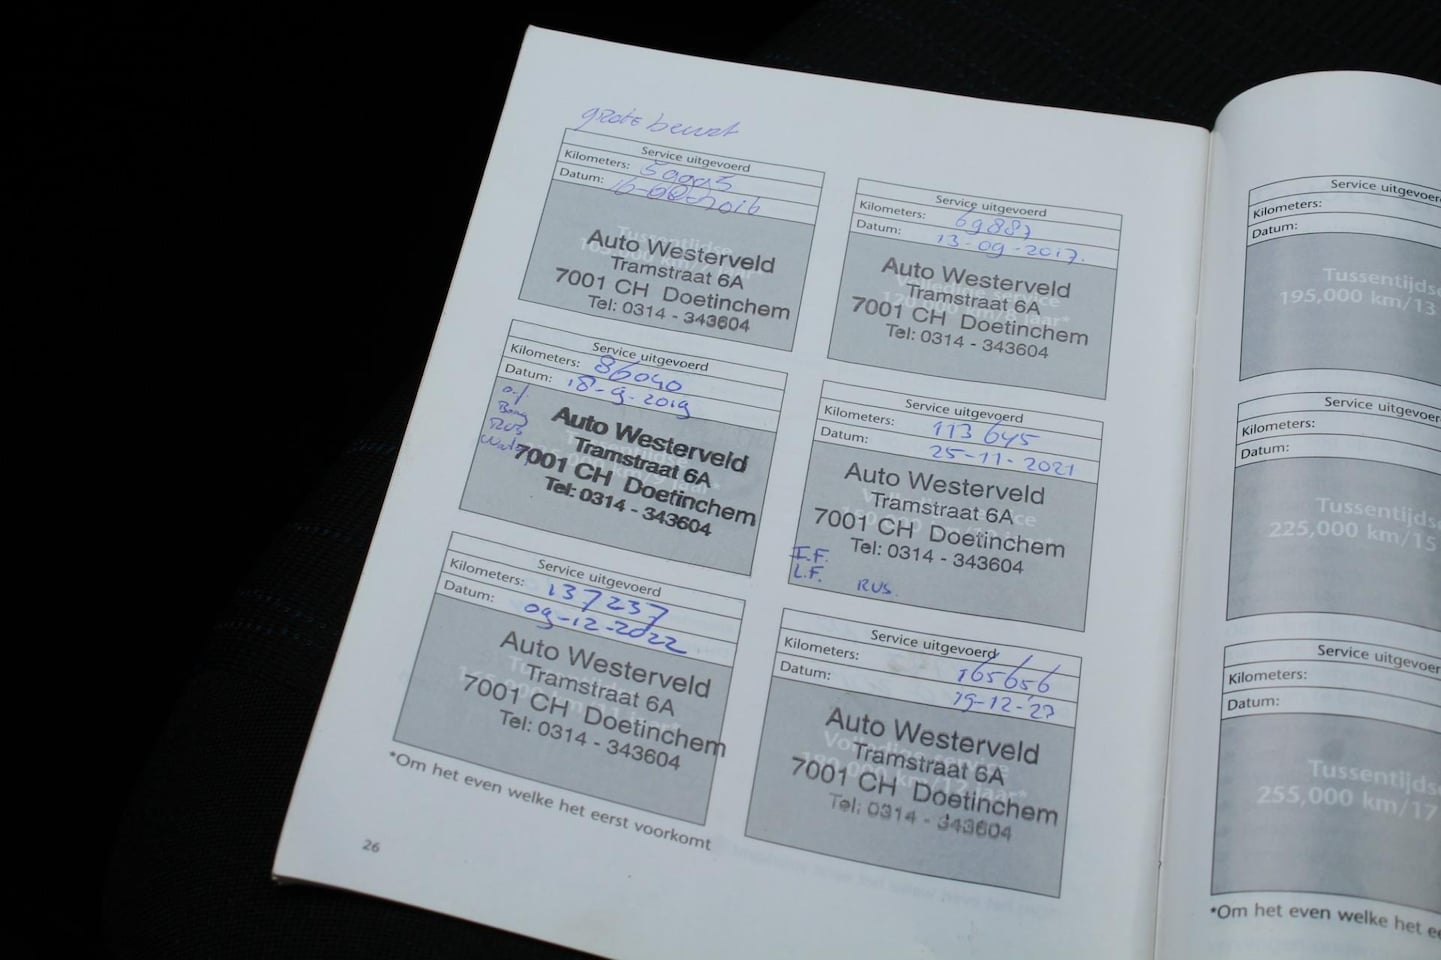 grote beurt
Service uitgevoerd
Kilometers:
Datum: 2016
Tussentijdse
Auto Westerveld
Tramstraat 6A
7001 CH Doetinchem
Tel: 0314 - 343604
Service uitgevoerd
Kilometers: 69887
Datum: 13-09-2017.
Volledige service
120,000 km/8 jaar*
Auto Westerveld
Tramstraat 6A
7001 CH Doetinchem
Tel: 0314 - 343604
Service uitgevoerd
Kilometers: 86040
Datum: 18-9-2019
Auto Westerveld
Tramstraat 6A
7001 CH Doetinchem
Tel: 0314 - 343604
Service uitgevoerd
Kilometers: 113645
Datum: 25-11-2021
Auto Westerveld
Tramstraat 6A
7001 CH Doetinchem
Tel: 0314 - 343604
I.F.
L.F. RUS.
Service uitgevoerd
Kilometers: 137237
Datum: 09-12-2022
Auto Westerveld
Tramstraat 6A
7001 CH Doetinchem
Tel: 0314 - 343604
Service uitgevoerd
Kilometers: 165656
Datum: 19-12-'23
Volledige service
180,000 km/12 jaar*
Auto Westerveld
Tramstraat 6A
7001 CH Doetinchem
Tel: 0314 - 343604
*Om het even welke het eerst voorkomt
26
Service uitgevoerd
Kilometers:
Datum:
Tussentijds
195,000 km/13
Service uitgevoer
Kilometers:
Datum:
Tussentijds
225,000 km/15
Service uitgevoer
Kilometers:
Datum:
Tussentijds
255,000 km/17
*Om het even welke het e